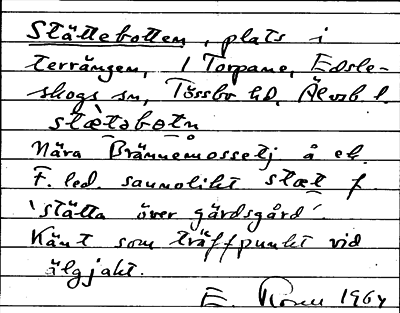 Stättebotten, plats i
terrängen, 1 Torpane, Edsle-
skogs sn, Tössbo hd. Älvsb l.
stæ̀təbɵtn
Nära Brännemossetj å ek.
F. led. sannolikt stæt f
'stätta över gärdsgård'.
Känt som träffpunkt vid
älgjakt.
E. 1964